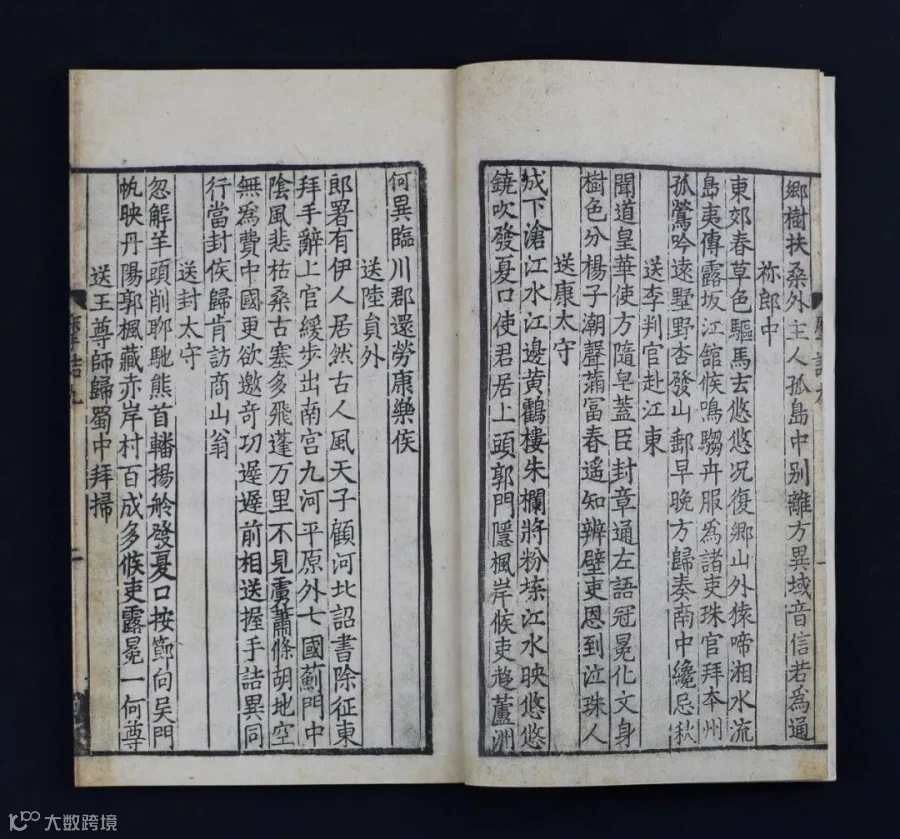 鄉樹扶桑外主人孤島中别離方異域音信若為通
祢郎中
東郊春草色驅馬去悠悠况復鄉山外猿啼湘水流
島夷傳露坂江館候鳴騶卉服為諸吏珠官拜本州
孤鶯吟遠墅野杏發山郵早晚方歸奏南中纔忌秋
送李判官赴江東
聞道皇華使方隨皂蓋臣封章通左語冠冕化文身
樹色分楊子潮聲蒲冨春遥知辨璧吏恩到泣珠人
送康太守
城下滄江水江邊黄鶴樓朱欄將粉堞江水映悠悠
鐃吹發夏口使君居上頭郭門隱楓岸候吏趍蘆洲
何異臨川郡還勞康樂侯
送陸員外
郎署有伊人居然古人風天子顧河北詔書除征東
拜手辭上官緩步出南宫九河平原外七國薊門中
陰風悲枯桑古塞多飛蓬万里不見虜蕭條胡地空
無為費中國更欲邀竒功遲遲前相送握手詰異同
行當封侯歸肯訪商山翁
送封太守
忽解羊頭削聊馳熊首轓揚舲發夏口按節向吴門
帆映丹陽郭楓藏赤岸村百成多候吏露冕一何尊
送王尊師歸蜀中拜掃
二
大数跨境